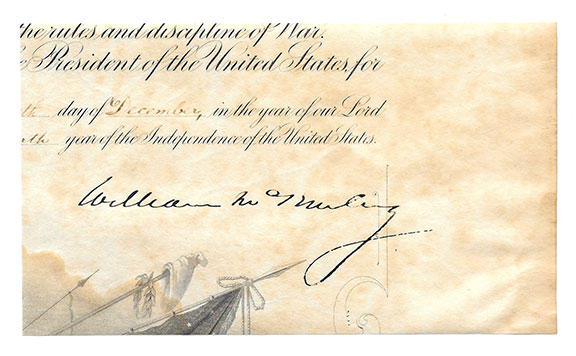 the rules and discipline of War.
President of the United States, for
th day of December, in the year of our Lord
th year of the Independence of the United States.
William McKinley